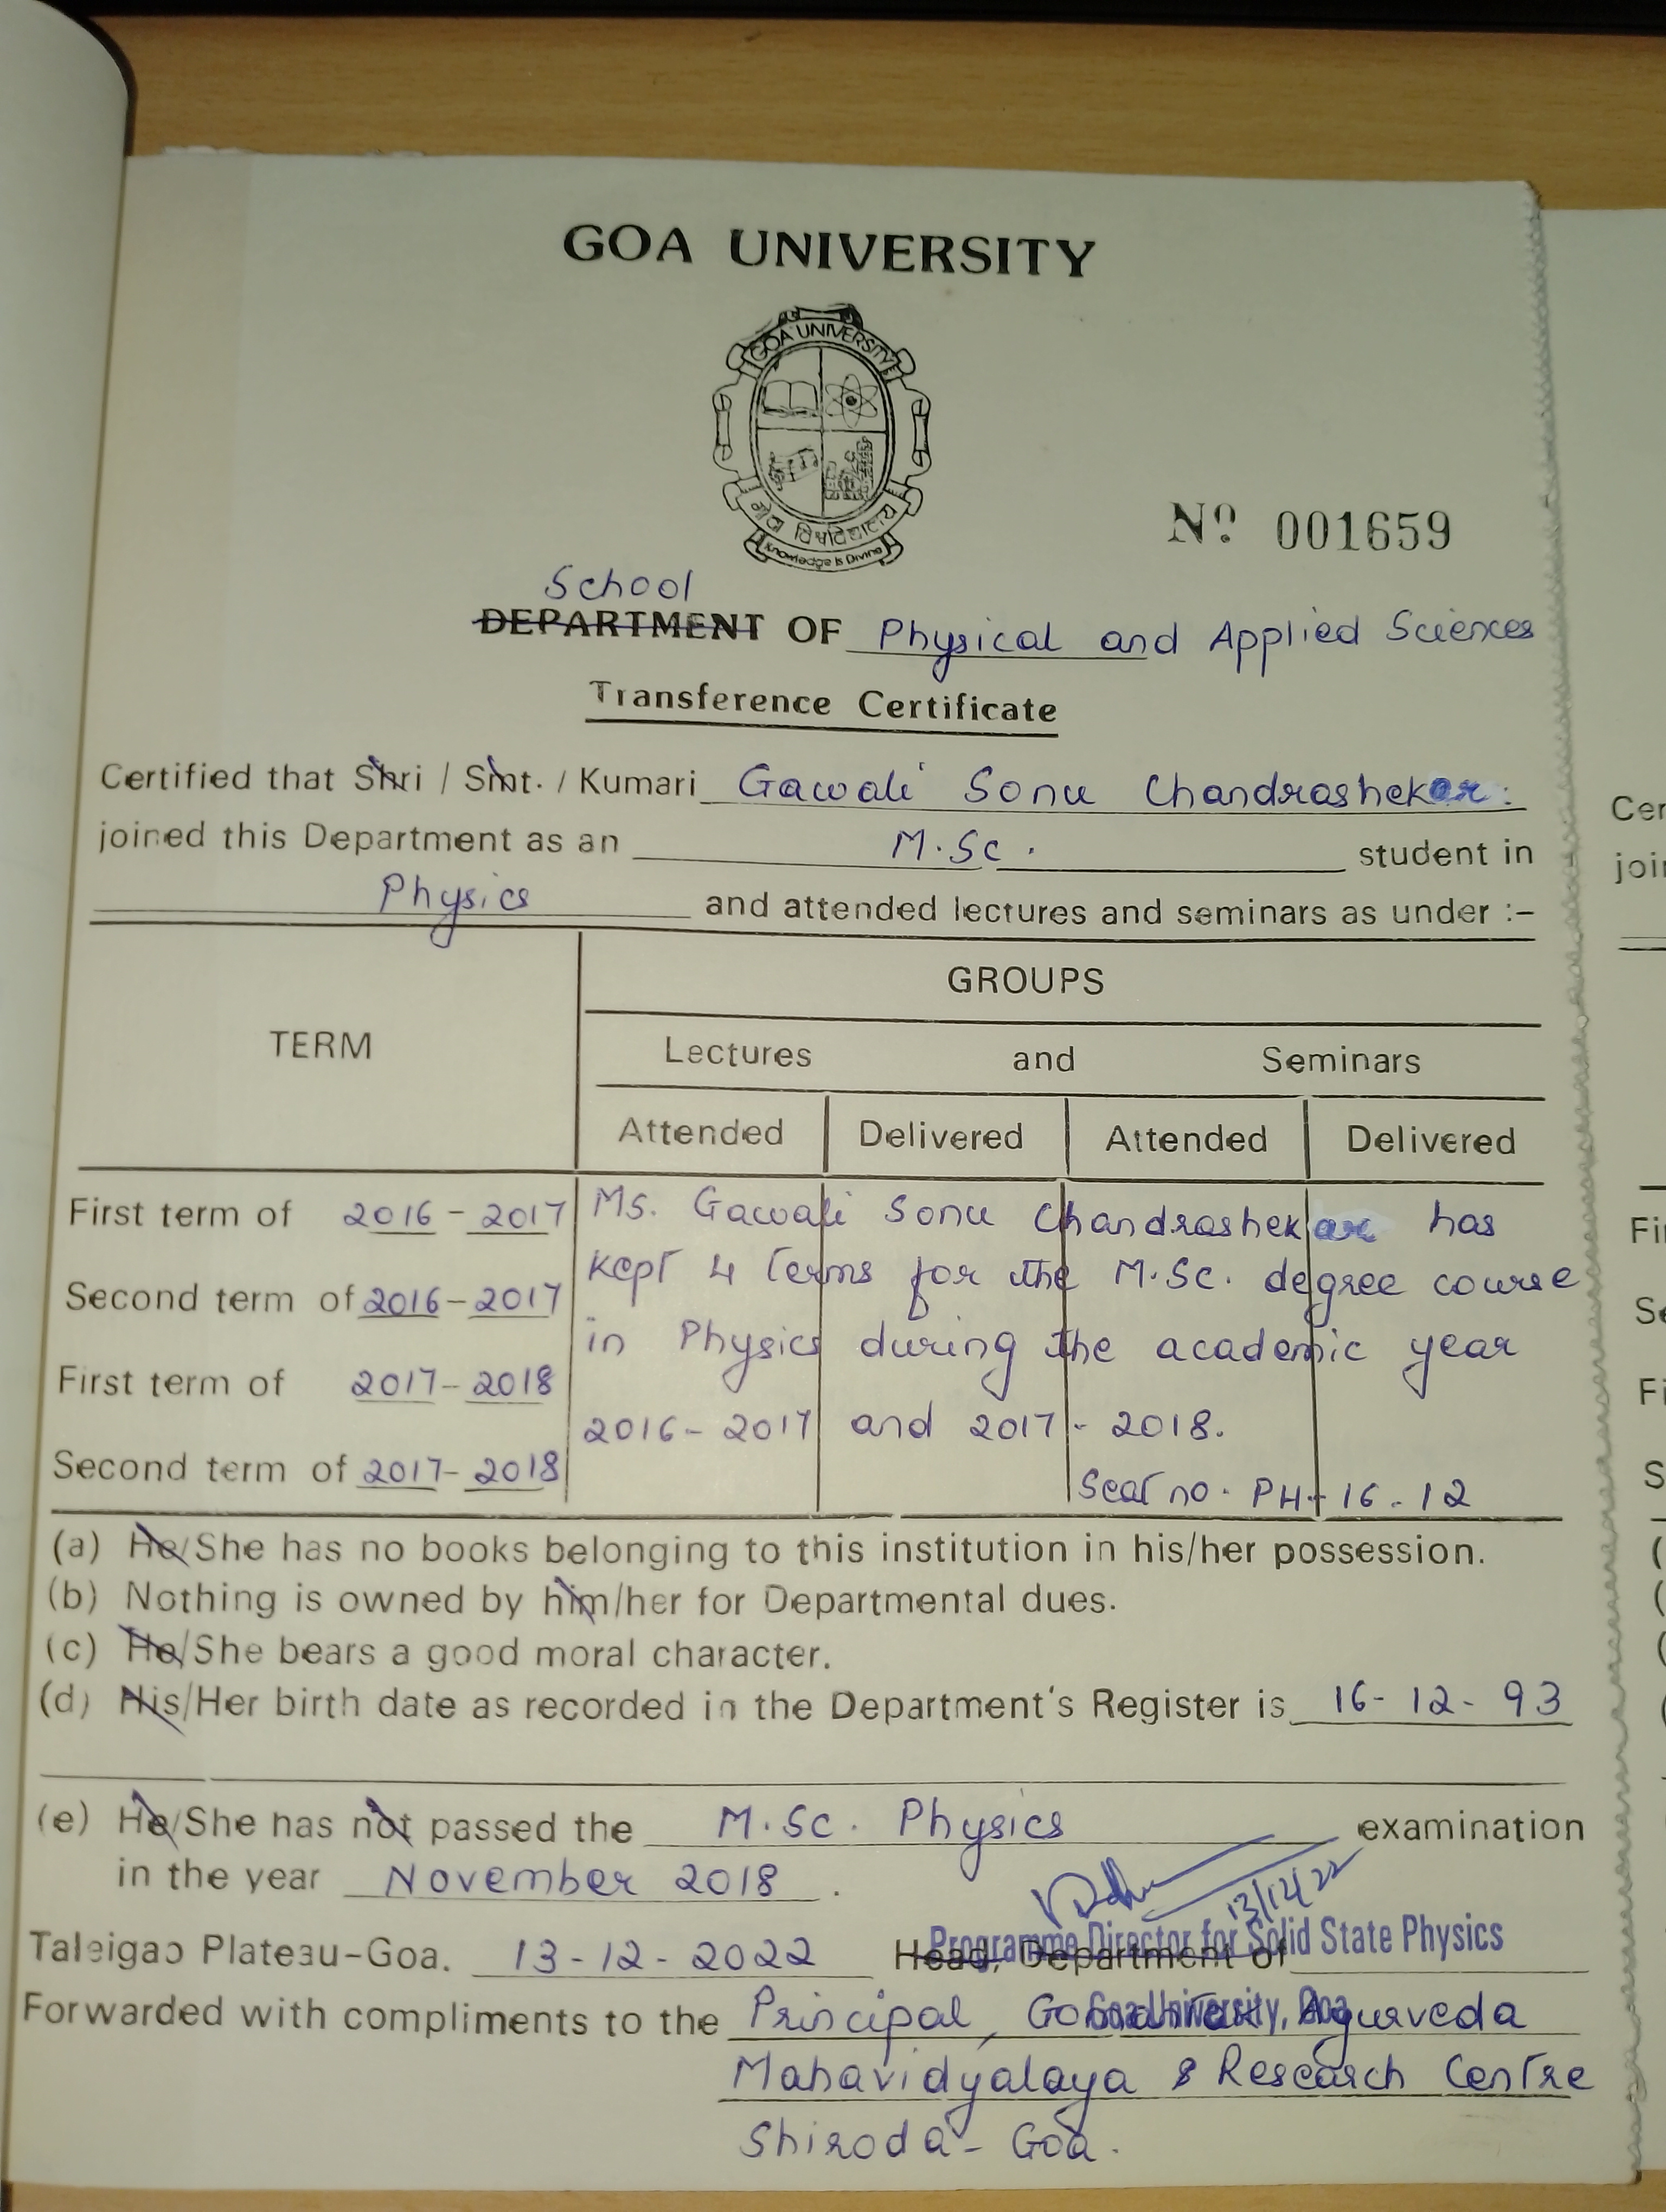 GOA UNIVERSITY
GOA UNIVERSITY
गोवा विश्वविद्यालय
Knowledge is Divine
Nº 001659
School
DEPARTMENT OF Physical and Applied Sciences
Transference Certificate
Certified that Shri / Smt. / Kumari Gawali Sonu Chandrashekar.
joined this Department as an M.Sc. student in
Physics and attended lectures and seminars as under :–
GROUPS
TERM
Lectures and Seminars
Attended Delivered Attended Delivered
First term of 2016 - 2017 Ms. Gawali Sonu Chandrashekar has
Second term of 2016 - 2017 kept 4 terms for the M.Sc. degree course
in Physics during the academic year
First term of 2017 - 2018
2016 - 2017 and 2017 - 2018.
Second term of 2017 - 2018 Seat no. PH - 16 - 12
(a) He/She has no books belonging to this institution in his/her possession.
(b) Nothing is owned by him/her for Departmental dues.
(c) He/She bears a good moral character.
(d) His/Her birth date as recorded in the Department's Register is 16 - 12 - 93
(e) He/She has not passed the M.Sc. Physics examination
in the year November 2018.
13/12/22
Programme Director for Solid State Physics
Taleigao Plateau-Goa. 13 - 12 - 2022 Head, Department of
Goa University, Goa
Forwarded with compliments to the Principal, Gomantak Ayurveda
Mahavidyalaya & Research Centre
Shiroda - Goa.